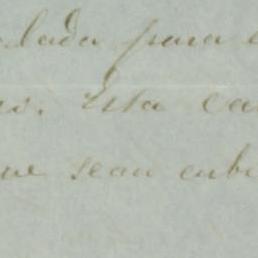 lada para
. Esta ca
ue sean cubi